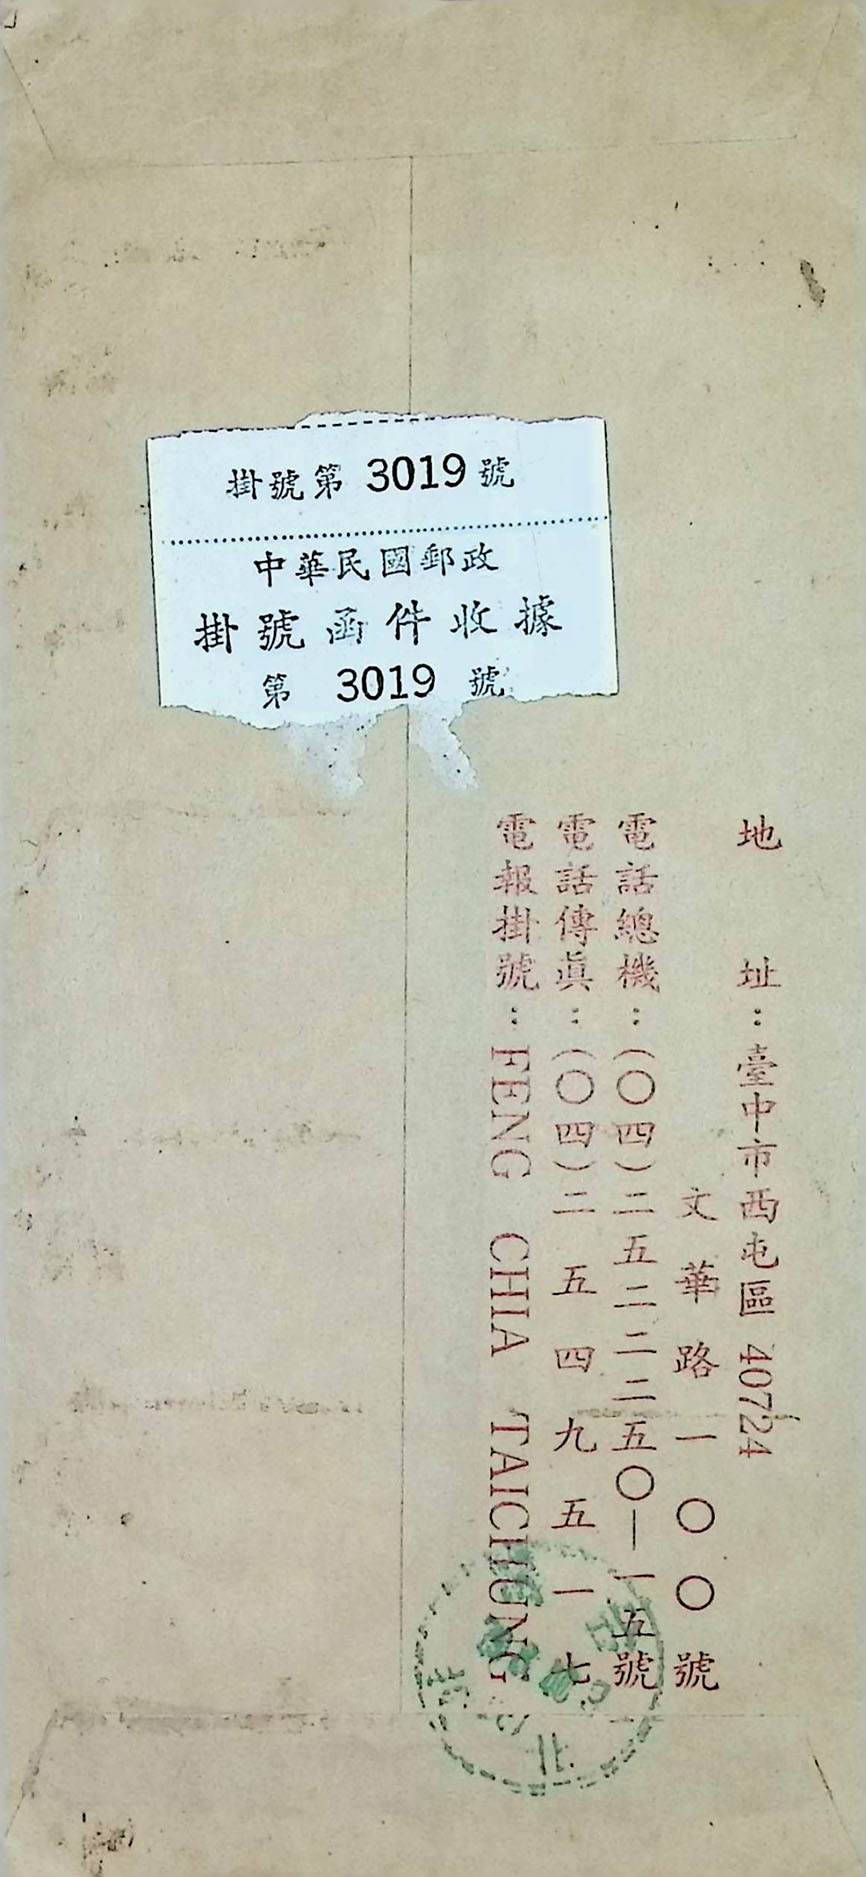 掛號第 3019 號
中華民國郵政
掛號函件收據
第 3019 號
地址：臺中市西屯區 40724
文華路一〇〇號
電話總機：(〇四)二五二二二五〇—一五號
電話傳眞：(〇四)二五四九五一七
電報掛號：FENG CHIA TAICHUNG